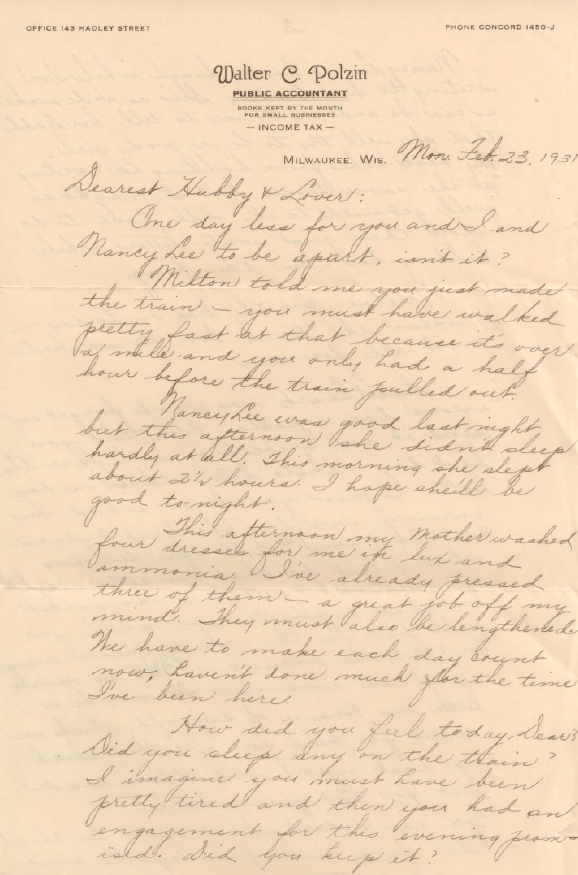 OFFICE 143 HADLEY STREET
PHONE CONCORD 1450-J
Walter C. Polzin
PUBLIC ACCOUNTANT
BOOKS KEPT BY THE MONTH
FOR SMALL BUSINESSES
— INCOME TAX —
MILWAUKEE, WIS. Mon. Feb. 23, 1931
Dearest Hubby & Lover:
One day less for you and I and
Nancy Lee to be apart, isn't it?
Milton told me you just made
the train — you must have walked
pretty fast at that because it's over
a mile and you only had a half
hour before the train pulled out.
Nancy Lee was good last night
but this afternoon she didn't sleep
hardly at all. This morning she slept
about 2½ hours. I hope she'll be
good to-night.
This afternoon my Mother washed
four dresses for me in lux and
ammonia. I've already pressed
three of them — a great job off my
mind. They must also be lengthened.
We have to make each day count
now, haven't done much for the time
I've been here.
How did you feel today, Dear?
Did you sleep any on the train?
I imagine you must have been
pretty tired and then you had an
engagement for this evening prom-
ised. Did you keep it?